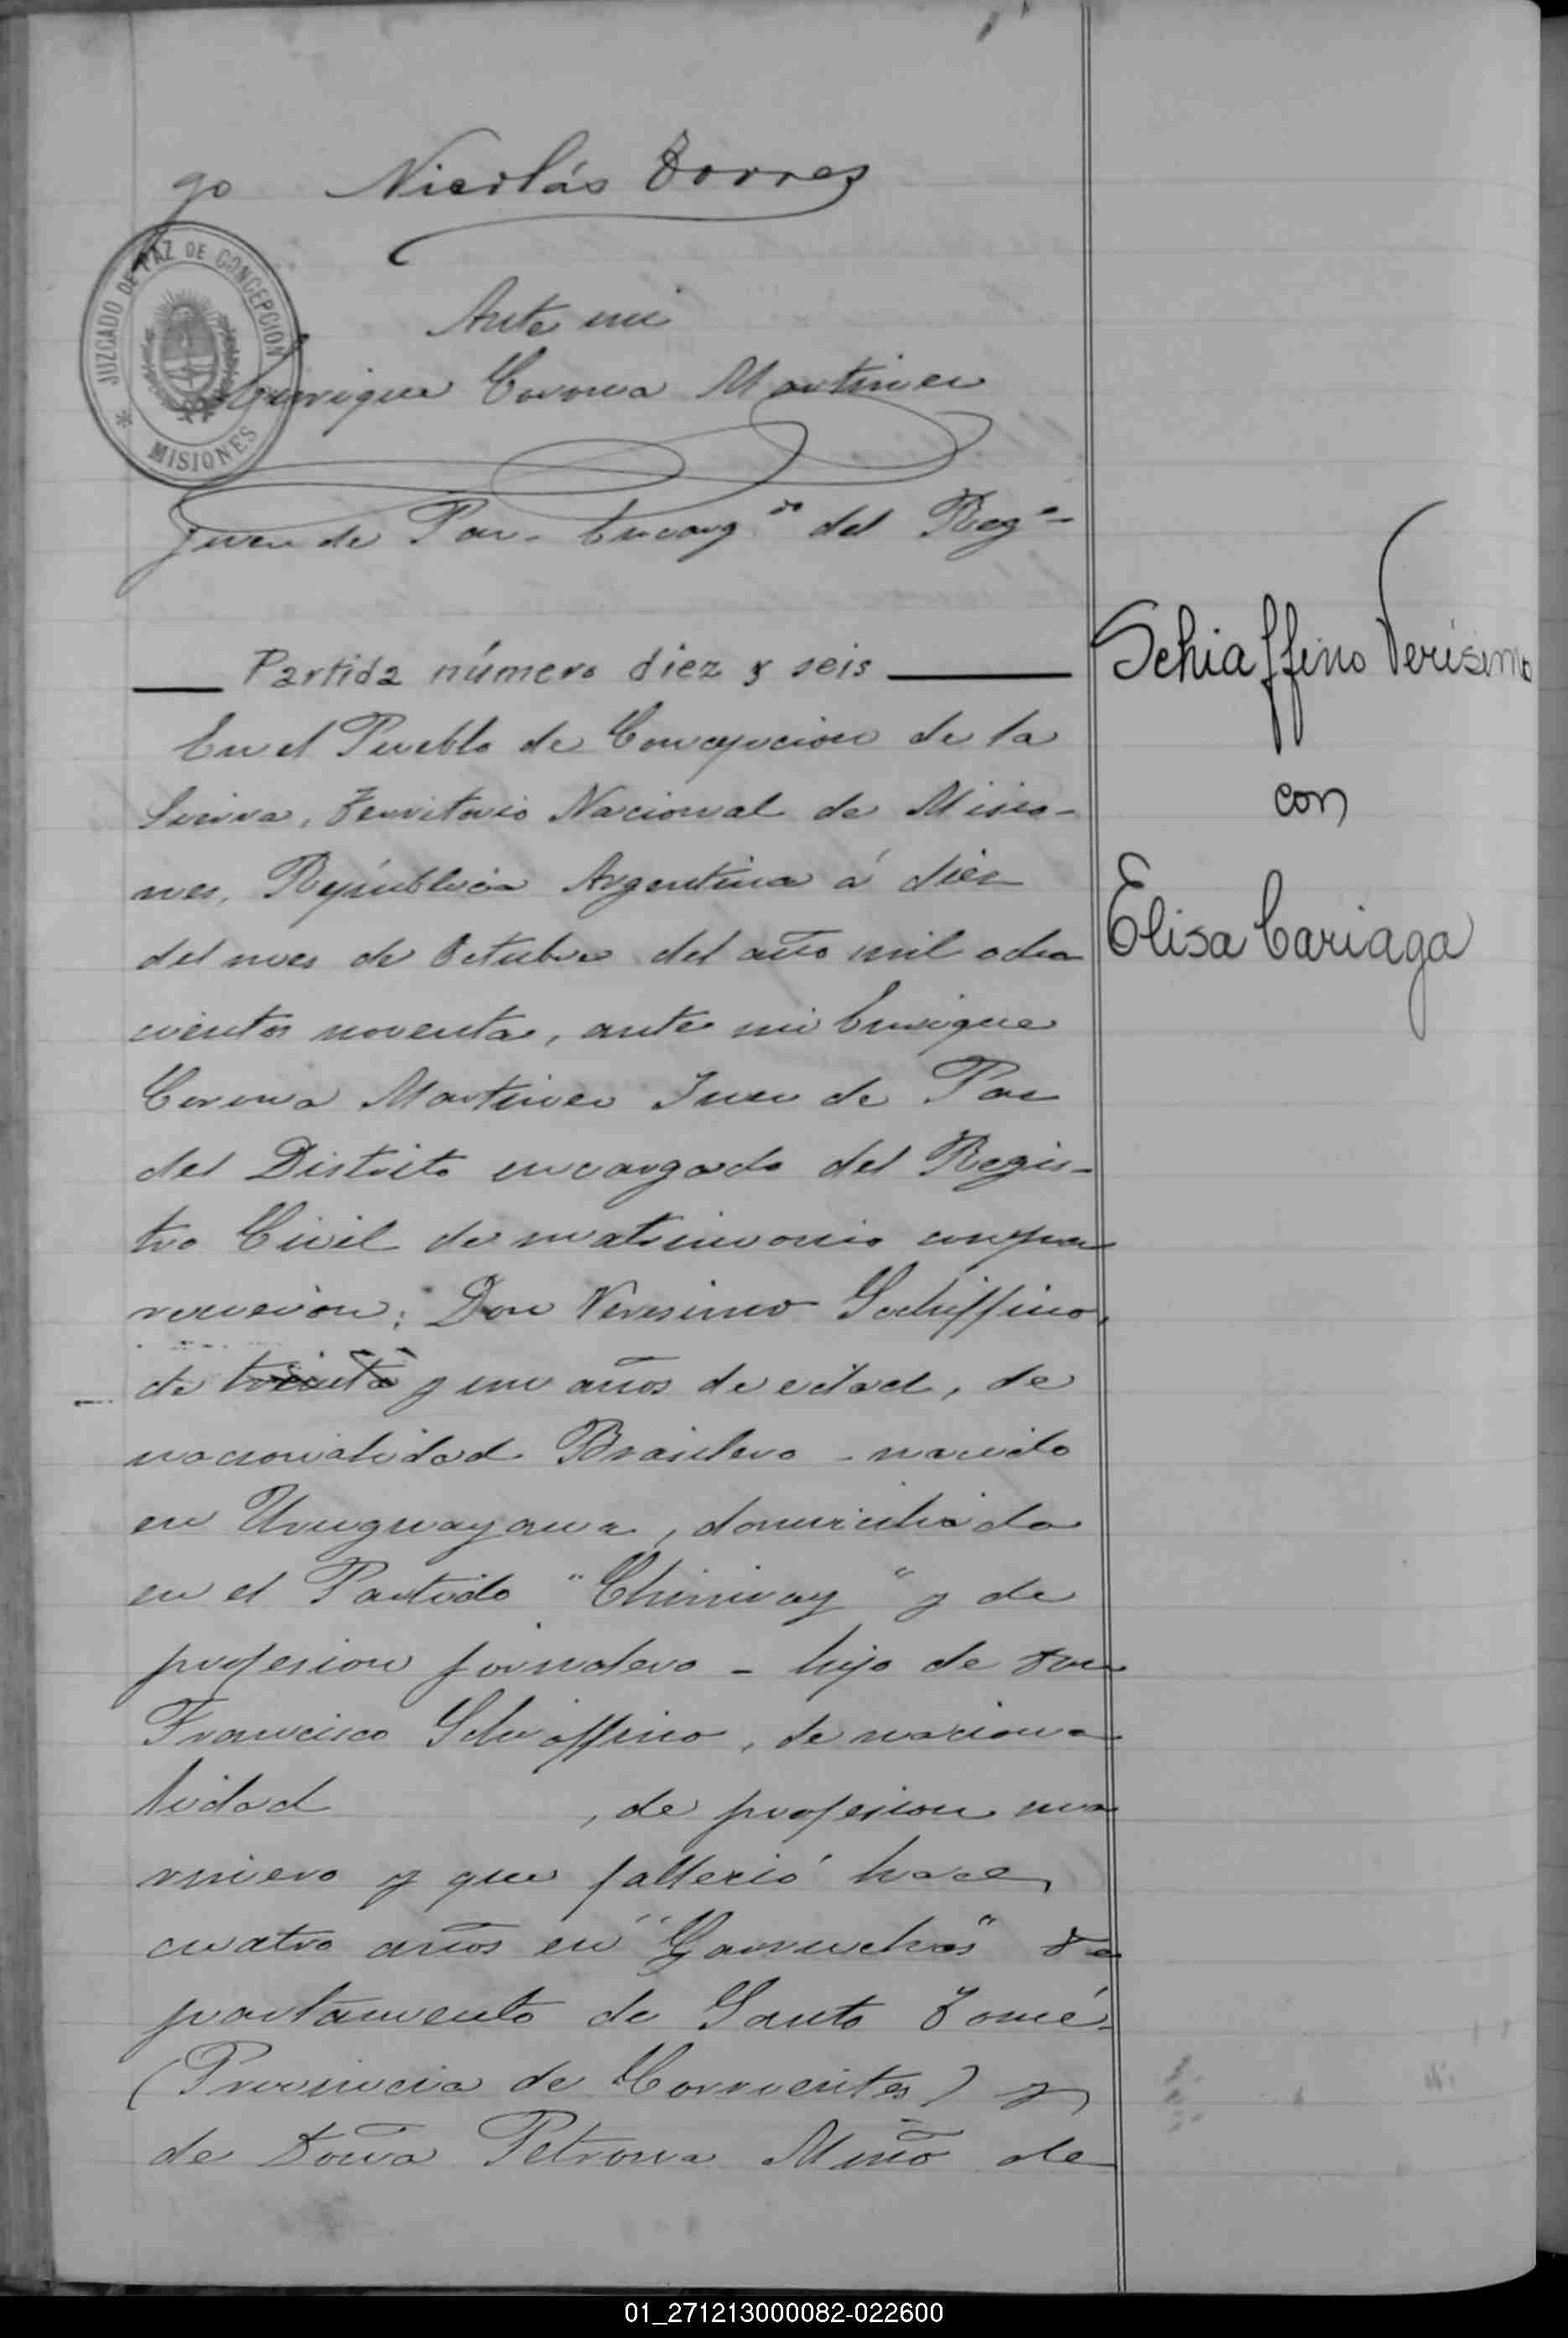 go Nicolás Torres
JUZGADO DE PAZ DE CONCEPCION
* MISIONES
Ante mi
Enrique Corona Martinez
Juez de Paz. Encarg.do del Rego
Partida número diez y seis
En el Pueblo de Concepcion de la
Sierra, Territorio Nacional de Misio-
nes, República Argentina á diez
del mes de Octubre del año mil ocho
cientos noventa, ante mi Enrique
Corona Martinez Juez de Paz
del Distrito encargado del Regis-
tro Civil de matrimonio compa
recieron: Don Veresimo Schiffino,
de treinta y un años de edad, de
nacionalidad Brasilero - nacido
en Uruguayana, domiciliado
en el Partido "Chimiray" y de
profesion jornalero - hijo de Don
Francisco Schiaffino, de naciona
lidad , de profesion ma
rinero y que falleció hace
cuatro años en "Garruchos" De
partamento de Santo Tomé
(Provincia de Corrientes) y
de Doña Petrona Miño de
Schiaffino Verísimo
con
Elisa Cariaga
01_271213000082-022600